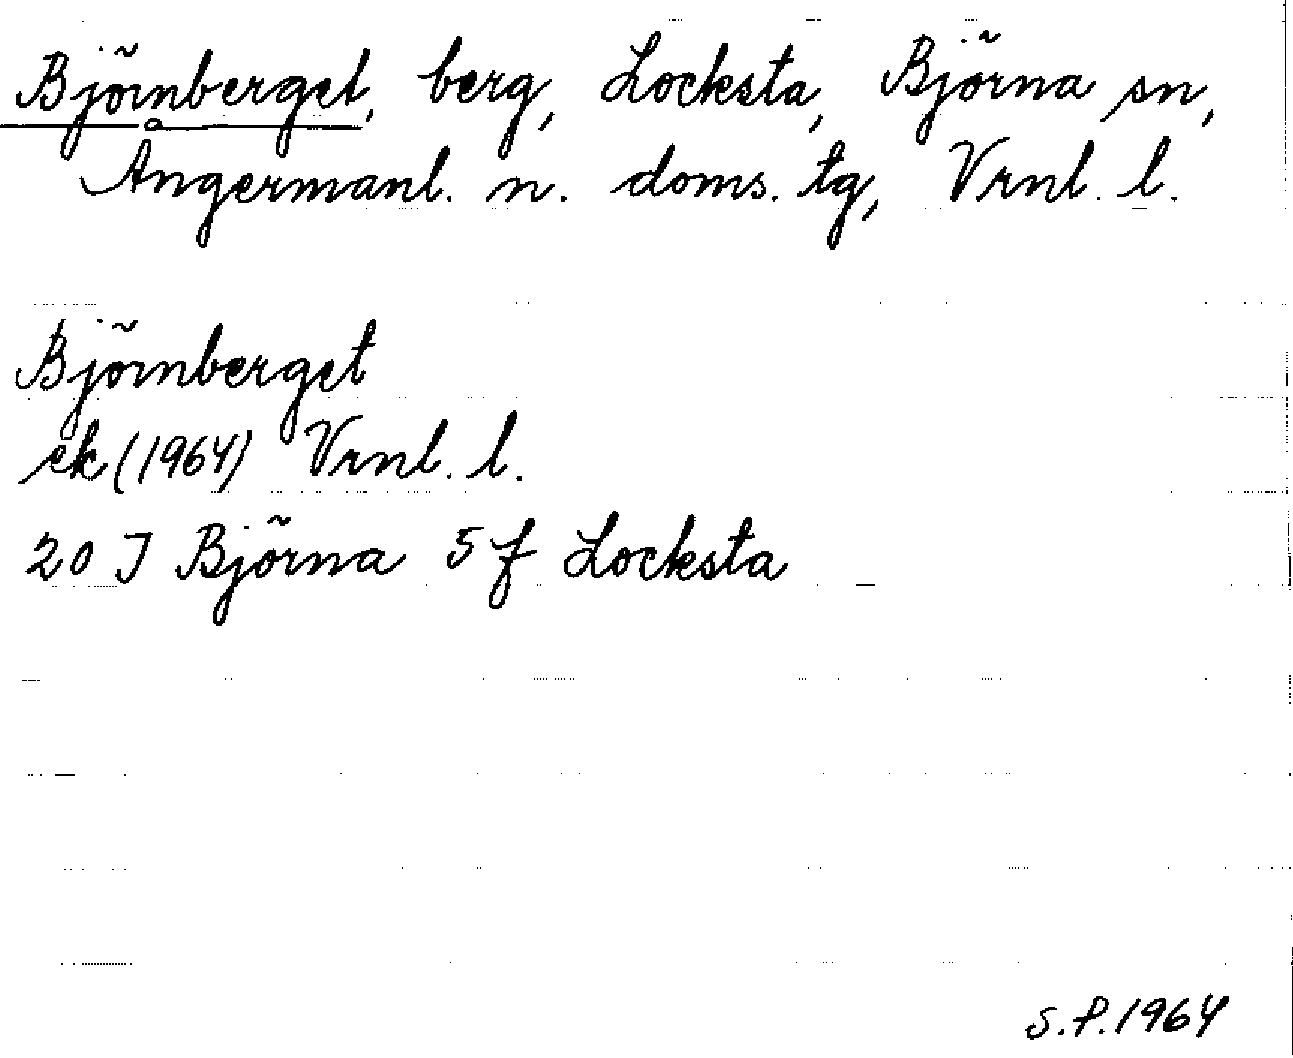 Björnberget, berg, Locksta, Björna sn,
Ångermanl. n. doms. tg, Vrnl. l.
Björnberget
ek (1964) Vrnl. l.
20 J Björna 5 f Locksta
S.P. 1964